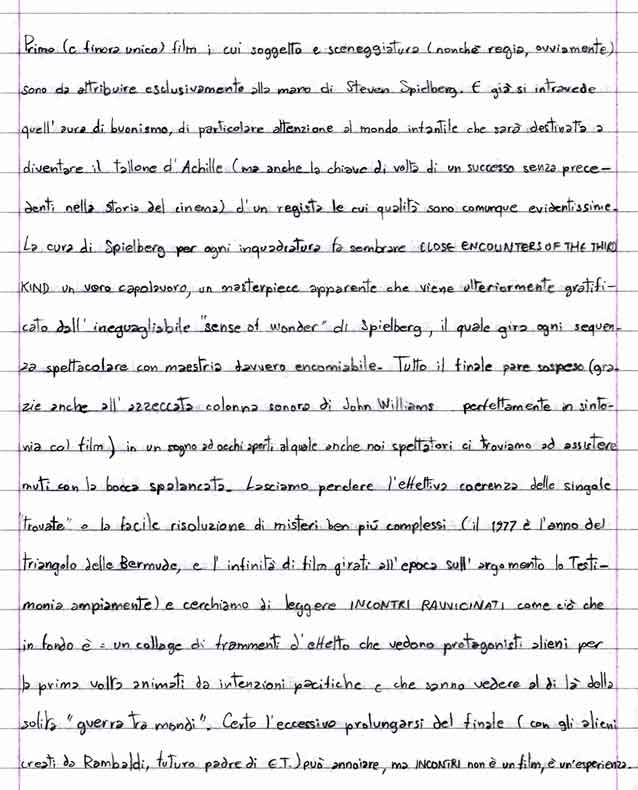 Primo (e finora unico) film i cui soggetto e sceneggiatura (nonchè regia, ovviamente)
sono da attribuire esclusivamente alla mano di Steven Spielberg. E già si intravede
quell'aura di buonismo, di particolare attenzione al mondo infantile che sarà destinata a
diventare il tallone d'Achille (ma anche la chiave di volta di un successo senza prece-
denti nella storia del cinema) d'un regista le cui qualità sono comunque evidentissime.
La cura di Spielberg per ogni inquadratura fa sembrare CLOSE ENCOUNTERS OF THE THIRD
KIND un vero capolavoro, un masterpiece apparente che viene ulteriormente gratifi-
cato dall'ineguagliabile "sense of wonder" di Spielberg, il quale gira ogni sequen-
za spettacolare con maestria davvero encomiabile. Tutto il finale pare sospeso (gra-
zie anche all'azzeccata colonna sonora di John Williams perfettamente in sinto-
nia col film) in un sogno ad occhi aperti al quale anche noi spettatori ci troviamo ad assistere
muti con la bocca spalancata. Lasciamo perdere l'effettiva coerenza delle singole
"trovate" o la facile risoluzione di misteri ben più complessi (il 1977 è l'anno del
triangolo delle Bermude, e l'infinità di film girati all'epoca sull'argomento lo testi-
monia ampiamente) e cerchiamo di leggere INCONTRI RAVVICINATI come ciò che
in fondo è: un collage di frammenti d'effetto che vedono protagonisti alieni per
la prima volta animati da intenzioni pacifiche e che sanno vedere al di là della
solita "guerra tra mondi". Certo l'eccessivo prolungarsi del finale (con gli alieni
creati da Rambaldi, futuro padre di E.T.) può annoiare, ma INCONTRI non è un film, è un'esperienza.